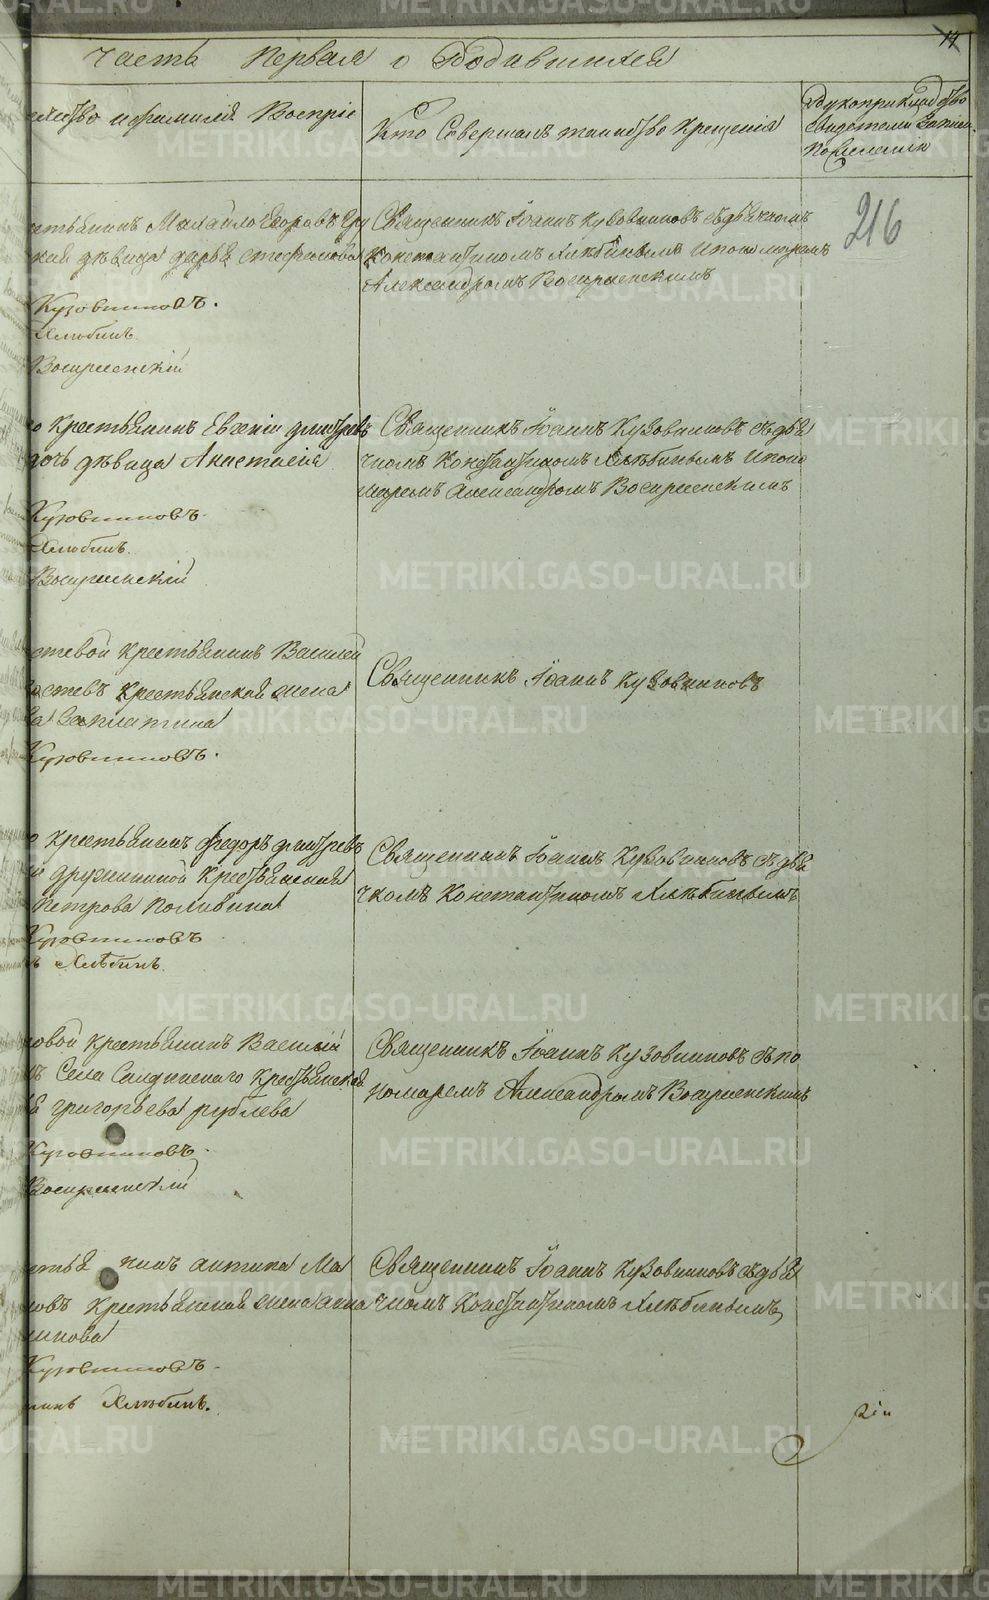 Часть Первая о Родившихся
14
ство и фамилія Воспріе
Кто Совершалъ таинство Крещенія
Рукоприкладство
свидетелей записи
по желанію
216
Михайло Егоровъ
девица дарья стефанова
Кузовниковъ.
Хлюбинъ
Воскресенскій
Священникъ Іоаннъ Кузовниковъ съ дьячкомъ
Константиномъ Хлѣбинымъ и пономаремъ
Александромъ Воскресенскимъ
крестьянинъ Евгеній дмитріевъ
дочь дѣвица Анастасія
Кузовниковъ
Хлюбинъ
Воскресенскій
Священникъ Іоаннъ Кузовниковъ съ дья
чкомъ Константиномъ Хлѣбинымъ и поно
маремъ Александромъ Воскресенскимъ
крестьянинъ Василей
крестьянская жена
ва заплатина
Кузовниковъ.
Священникъ Іоаннъ Кузовниковъ
крестьянинъ федоръ дмитріевъ
дружининой крестьянская
Петрова Поливина
Кузовниковъ
Хлѣбинъ
Священникъ Іоаннъ Кузовниковъ съ дья
чкомъ Константиномъ Хлѣбинымъ
крестьянинъ Василій
Села Салдинскаго крестьянской
григорьева рублева
Кузовниковъ
Воскресенскій
Священникъ Іоаннъ Кузовниковъ съ по
номаремъ Александромъ Воскресенскимъ
нинъ антипа Ма
новъ крестьянская жена анна
Кузовниковъ
Хлюбинъ.
Священникъ Іоаннъ Кузовниковъ съ дья
чкомъ Константиномъ Хлѣбинымъ
METRIKI.GASO-URAL.RU